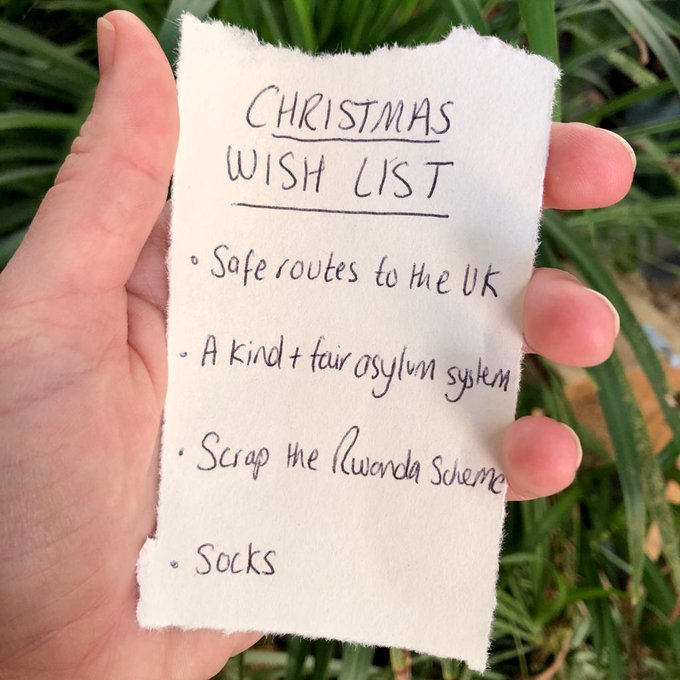 CHRISTMAS
WISH LIST
• Safe routes to the UK
• A kind + fair asylum system
• Scrap the Rwanda Scheme
• Socks